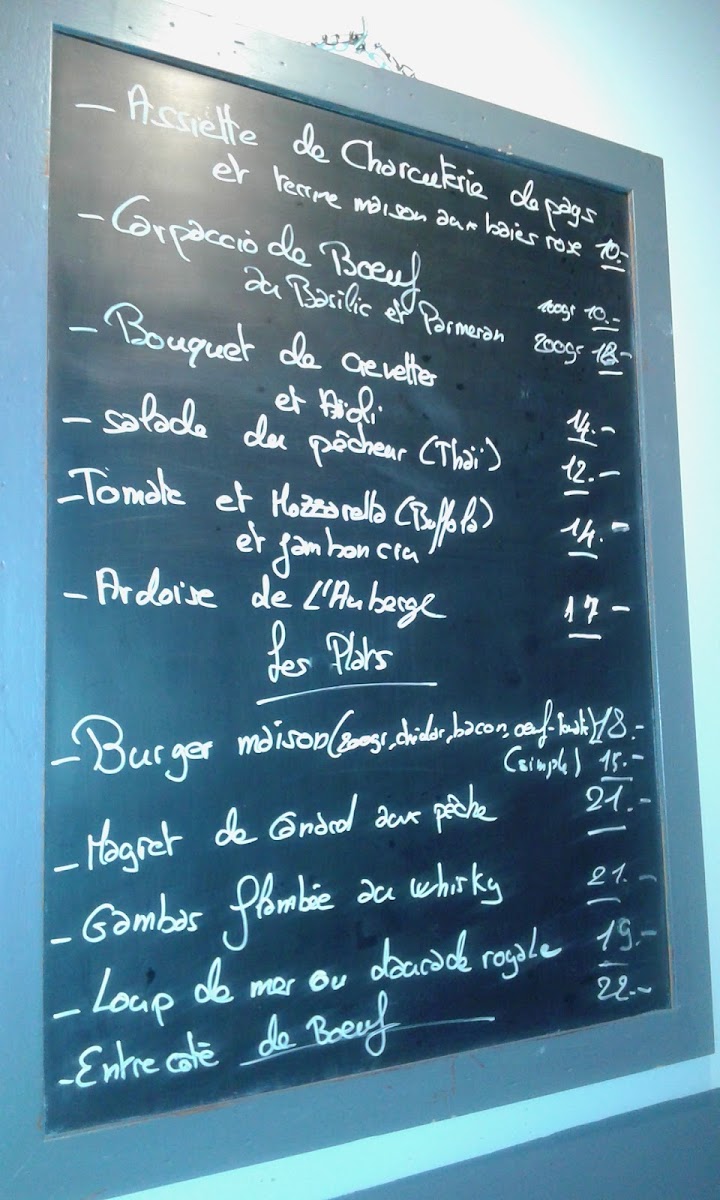 - Assiette de Charcuterie de pays
et terrine maison aux baies rose 10.-
- Carpaccio de Boeuf
au Basilic et Parmesan 100gr 10.-
200gr 18-
- Bouquet de crevettes
et Aïoli 14.-
- salade du pêcheur (Thaï) 12.-
- Tomate et Mozzarella (Buffala)
et jambon cru 14.-
- Ardoise de L'Auberge 17-
Les Plats
- Burger maison (200gr, chédar, bacon, oeuf- ) 18.-
(simple) 15.-
- Magret de Canard aux pêche 21.-
- Gambas flambée au whisky 21.-
- Loup de mer ou daurade royale 19.-
- Entre coté de Boeuf 22.-